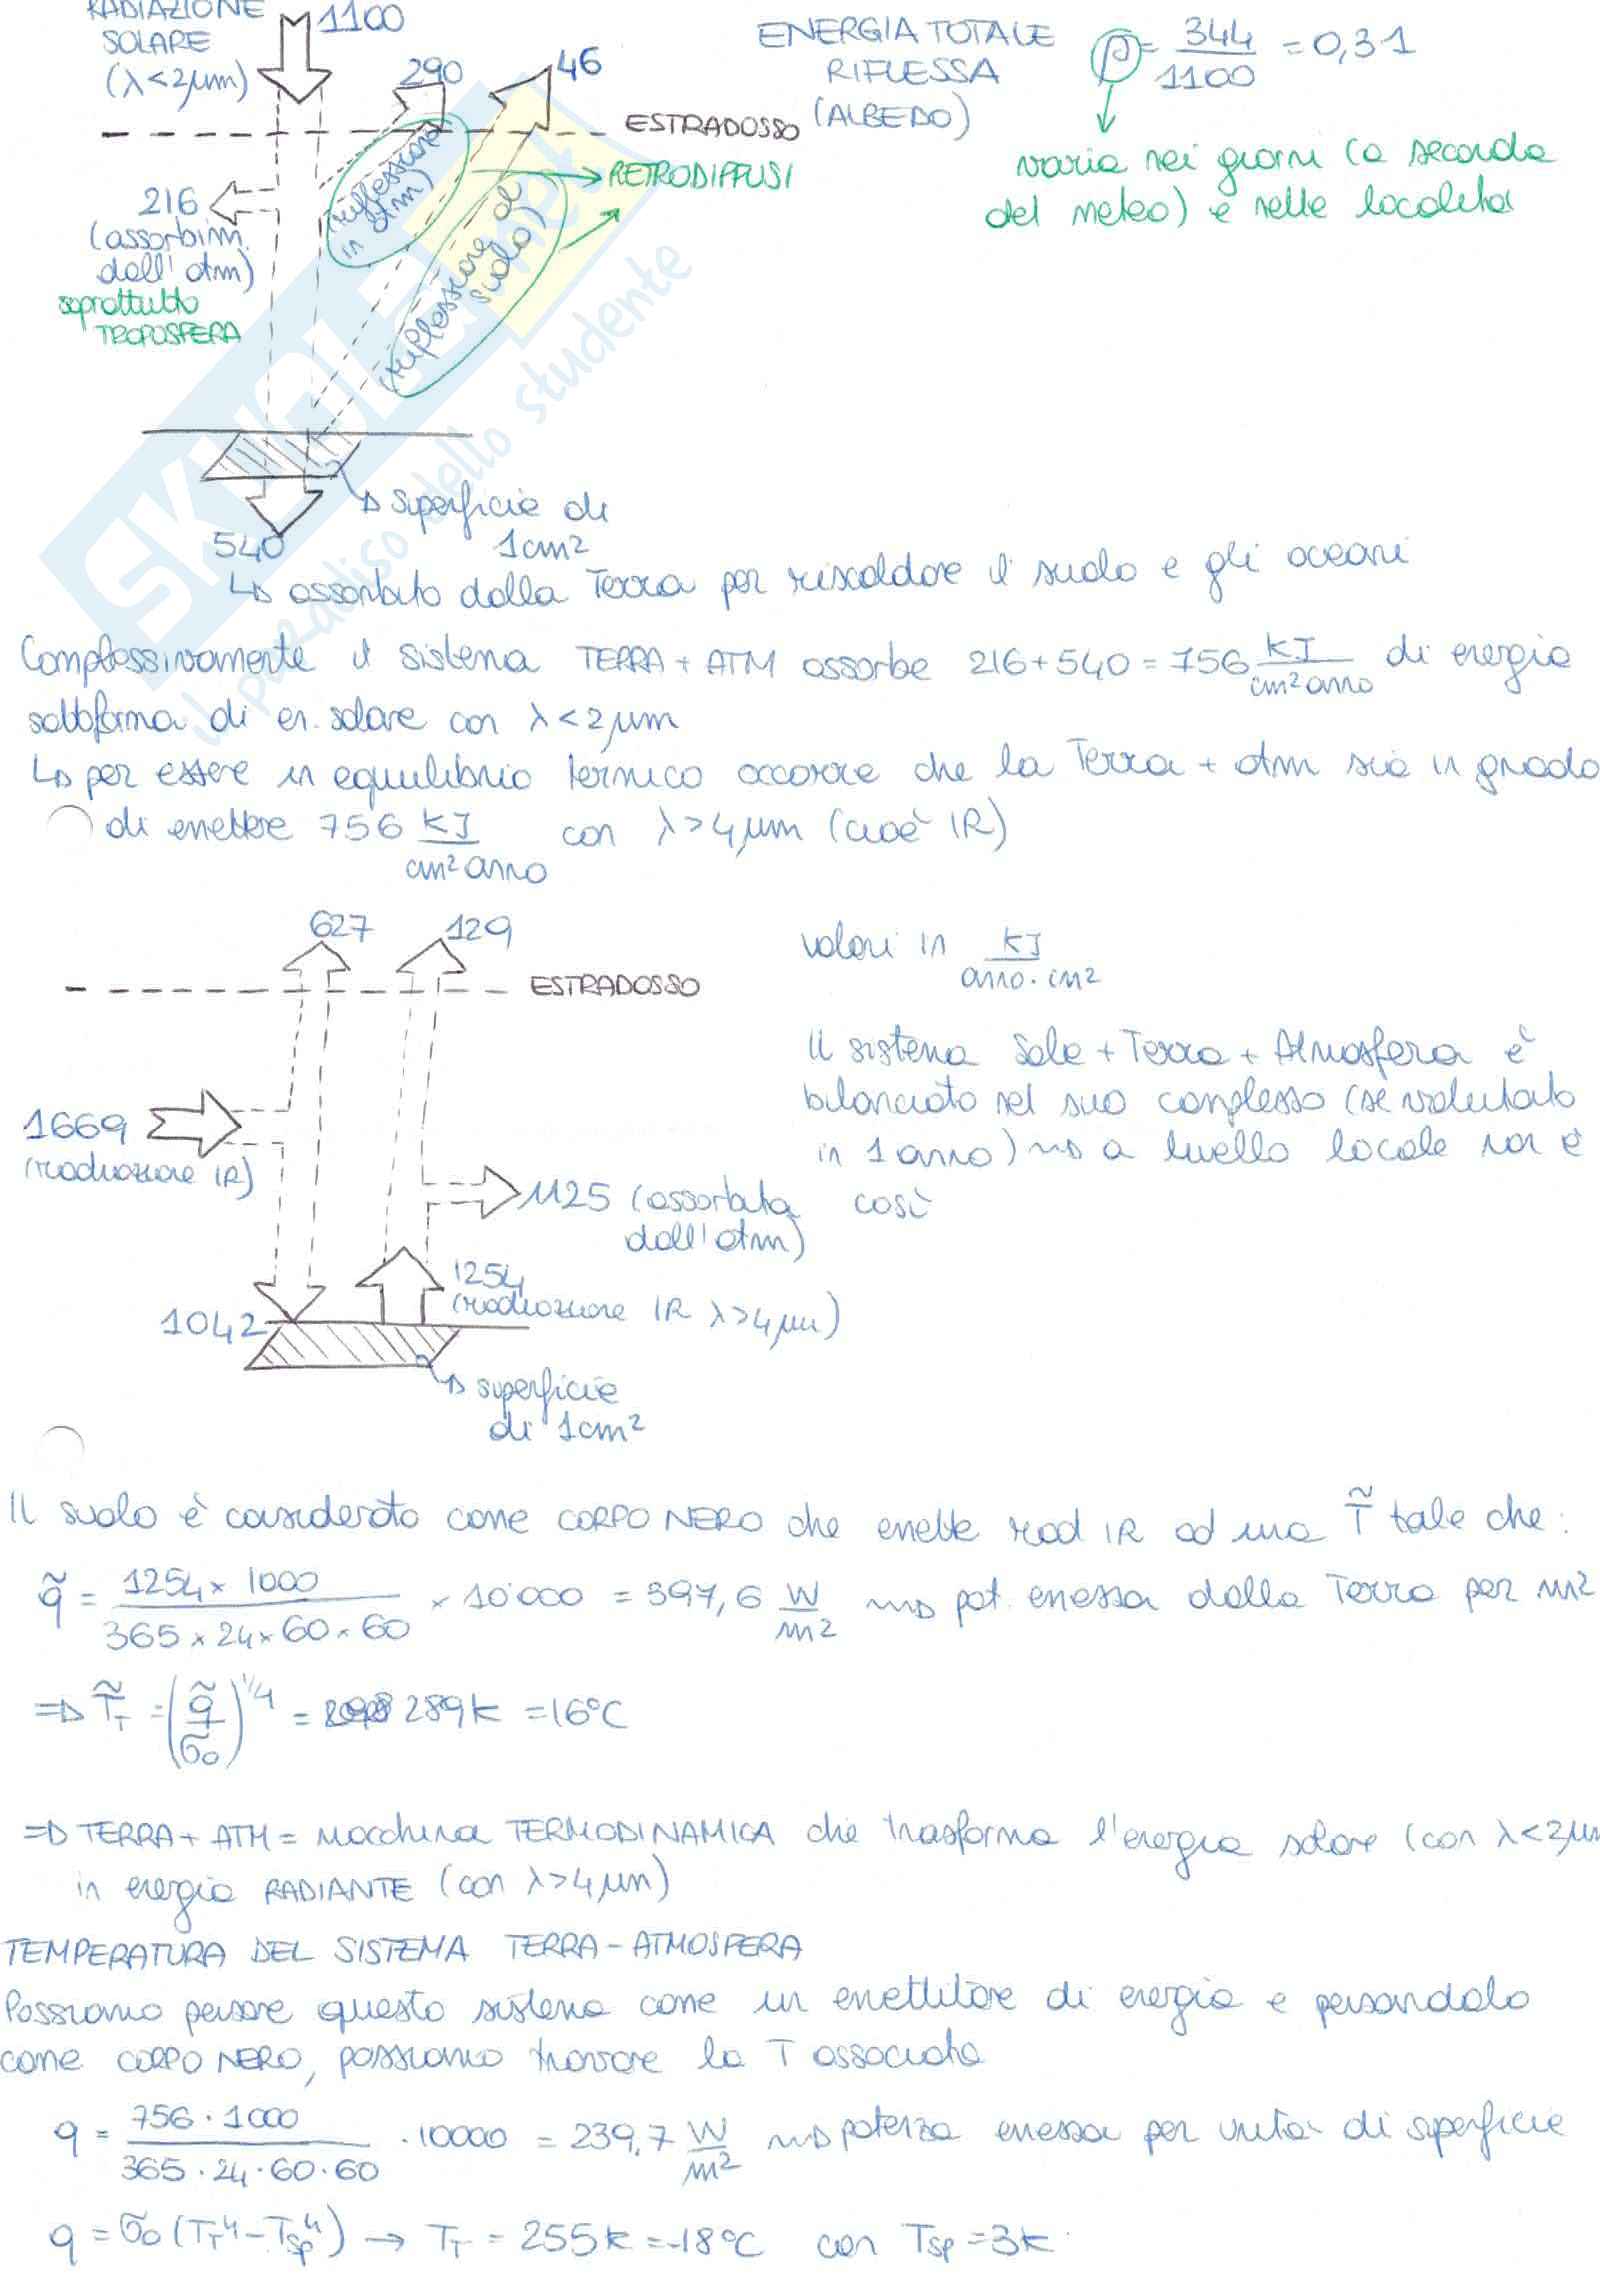 RADIAZIONE
SOLARE
(λ<2μm)
1100
290
46
ENERGIA TOTALE
RIFLESSA
(ALBEDO)
ρ = 344/1100 = 0,31
ESTRADOSSO
varia nei giorni (a seconda
del meteo) e nelle località
RETRODIFFUSI
(riflessione
in atm)
(riflessione di
suolo)
216
(assorbim.
dall'atm)
soprattutto
TROPOSFERA
Superficie di
1cm²
540
↳ assorbito dalla Terra per riscaldare il suolo e gli oceani
SKUOLA.net
il paradiso dello studente
Complessivamente il sistema TERRA + ATM assorbe 216+540=756 kJ/cm² anno di energia
sottoforma di en. solare con λ<2μm
↳ per essere in equilibrio termico occorre che la Terra + atm sia in grado
di emettere 756 kJ/cm² anno con λ>4μm (cioè IR)
627
129
ESTRADOSSO
valori in kJ/anno·cm²
Il sistema Sole + Terra + Atmosfera è
bilanciato nel suo complesso (se valutato
in 1 anno) ⇝ a livello locale non è
così
1669
(radiazione IR)
1125 (assorbita
dall'atm)
1254
(radiazione IR λ>4μm)
1042
superficie
di 1cm²
Il suolo è considerato come CORPO NERO che emette rad IR ad una T̃ tale che:
q̃ = 1254 × 1000 / 365 × 24 × 60 × 60 × 10'000 = 397,6 W/m² ⇝ pot. emessa dalla Terra per m²
⇒ T̃_T = (q̃/σ₀)^1/4 = 289K = 16°C
⇒ TERRA + ATM = macchina TERMODINAMICA che trasforma l'energia solare (con λ<2μm
in energia RADIANTE (con λ>4μm)
TEMPERATURA DEL SISTEMA TERRA-ATMOSFERA
Possiamo pensare questo sistema come un emettitore di energia e pensandolo
come CORPO NERO, possiamo trovare la T associata
q = 756 · 1000 / 365 · 24 · 60 · 60 · 10000 = 239,7 W/m² ⇝ potenza emessa per unità di superficie
q = σ₀ (T_T⁴ - T_sp⁴) → T_T = 255K = -18°C con T_sp = 3K